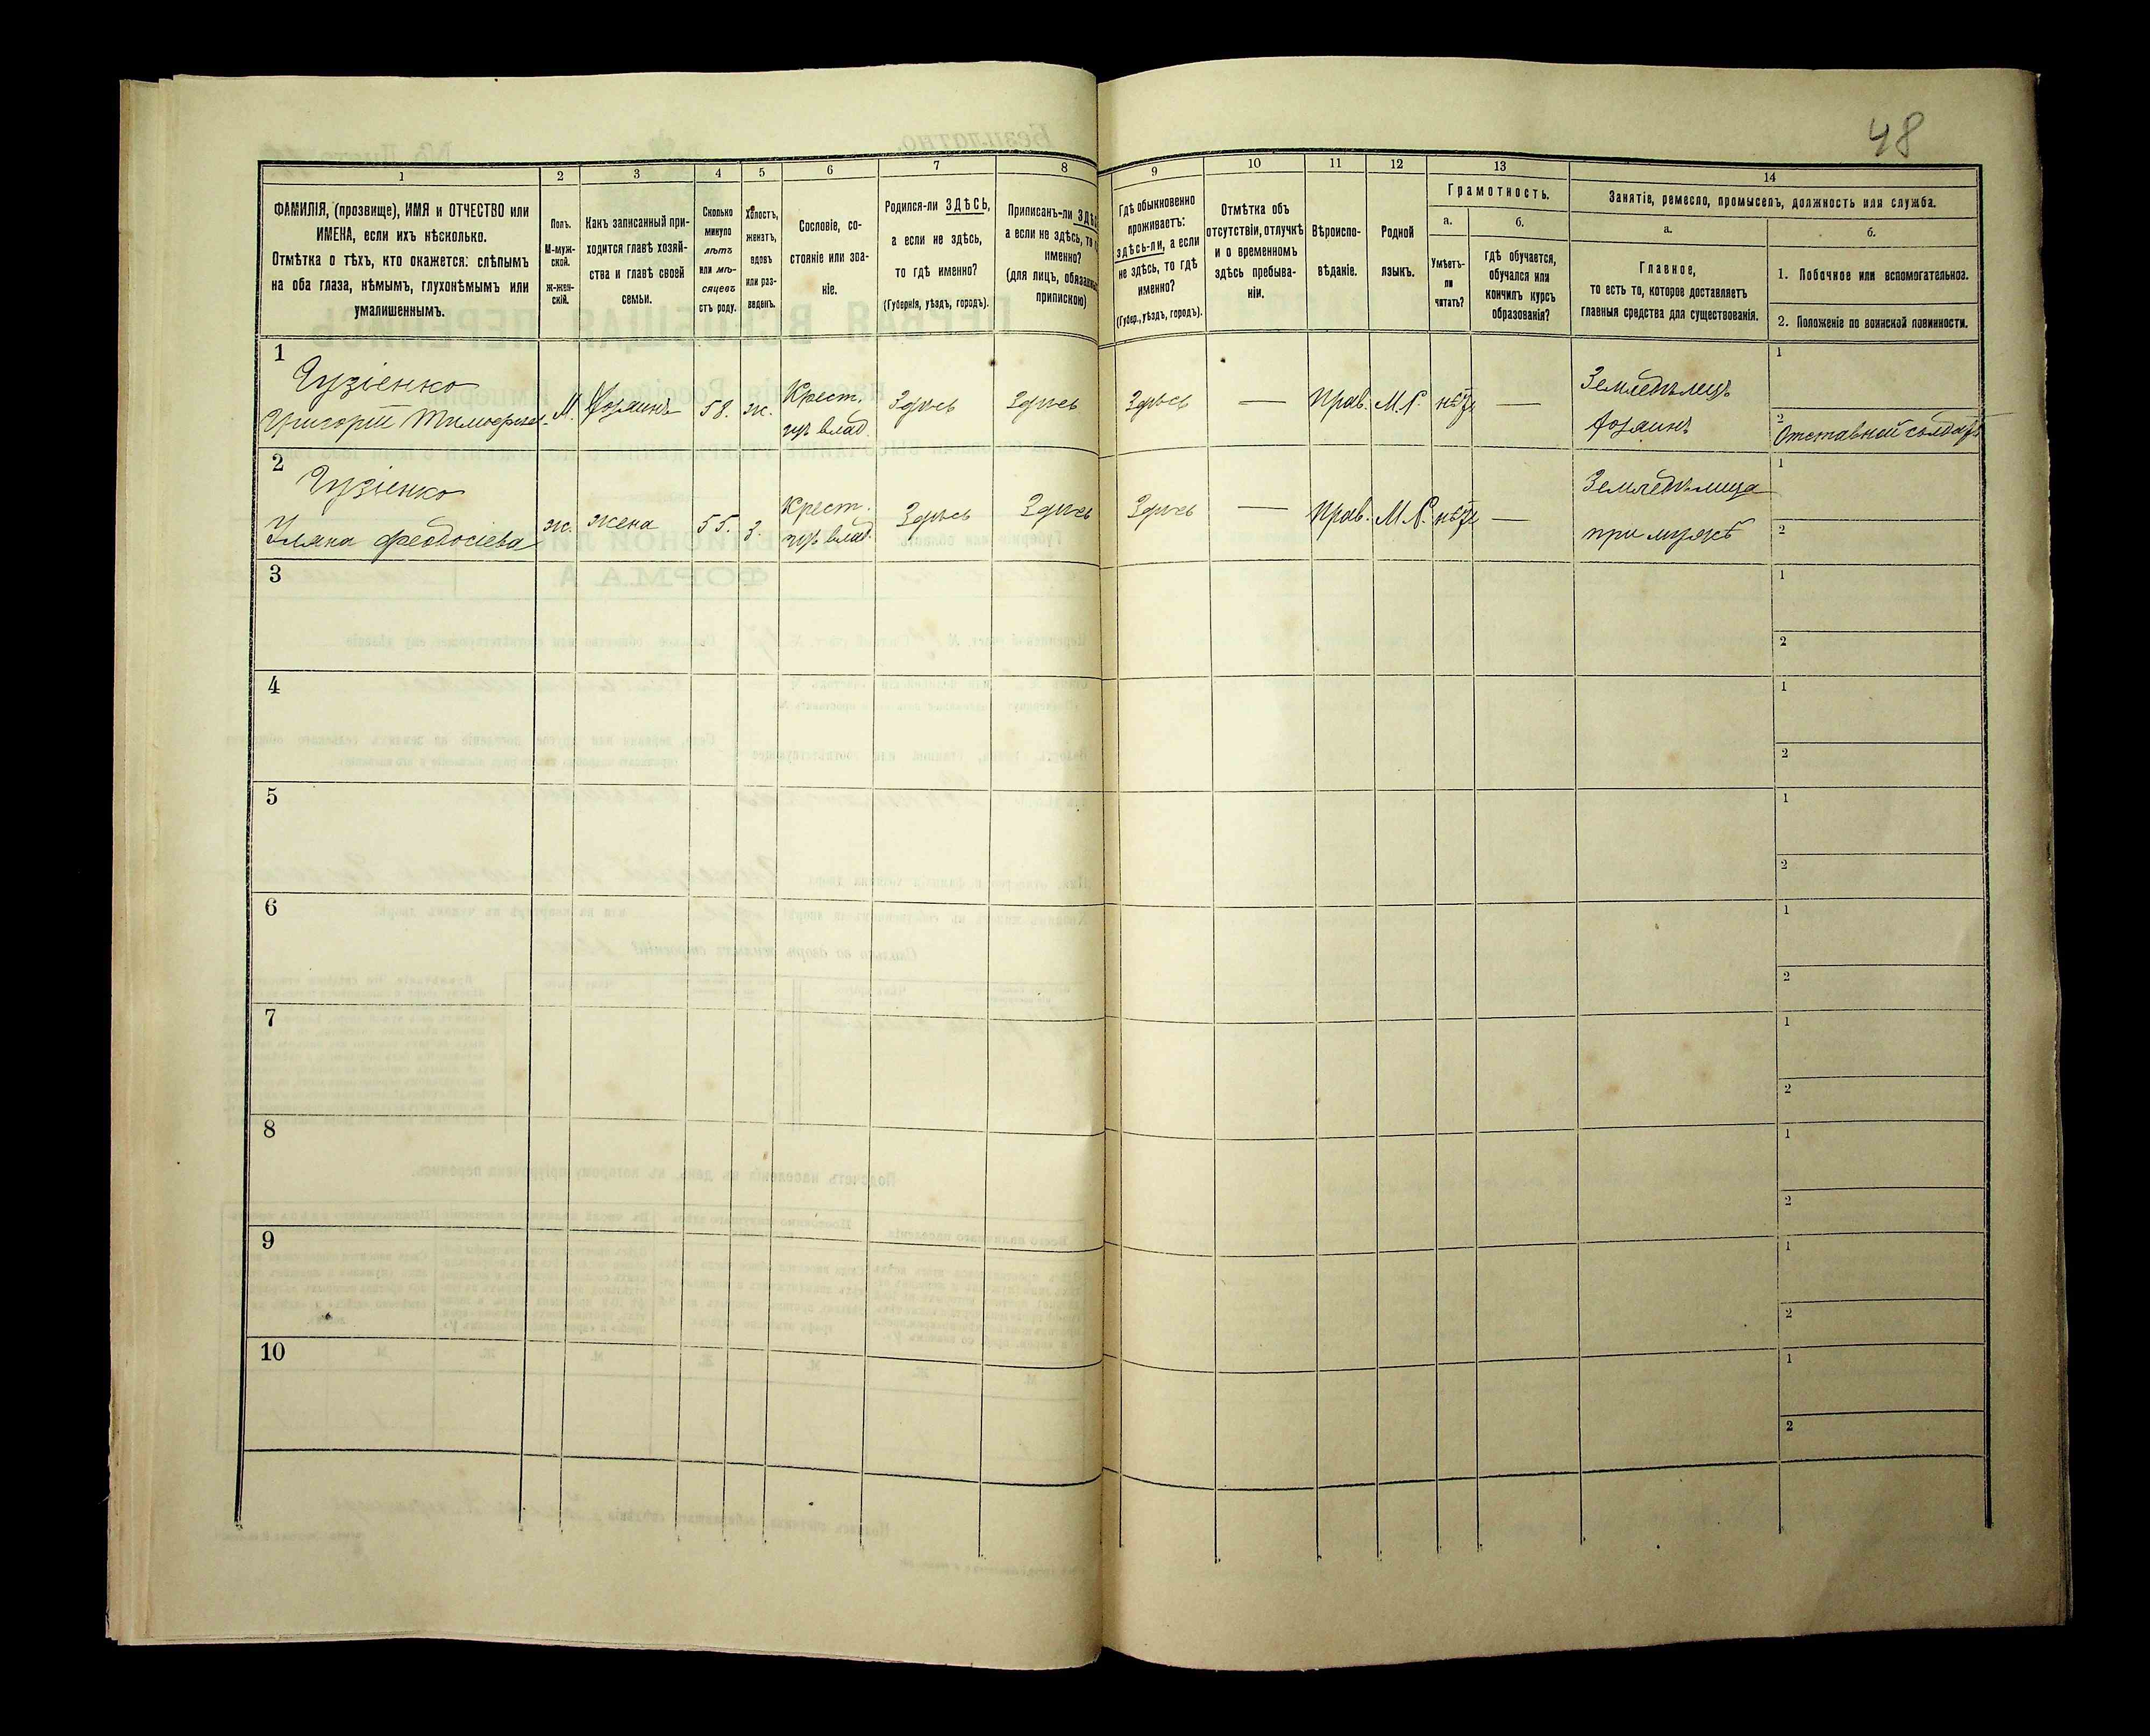 48
1
ФАМИЛІЯ, (прозвище), ИМЯ и ОТЧЕСТВО или
ИМЕНА, если ихъ нѣсколько.
Отмѣтка о тѣхъ, кто окажется: слѣпымъ
на оба глаза, нѣмымъ, глухонѣмымъ или
умалишеннымъ.
2
Полъ.
М-муж-
ской.
Ж-жен-
скій.
3
Какъ записанный при-
ходится главѣ хозяй-
ства и главѣ своей
семьи.
4
Сколько
минуло
лѣтъ
или мѣ-
сяцевъ
отъ роду.
5
Холостъ,
женатъ,
вдовъ
или раз-
веденъ.
6
Сословіе, со-
стояніе или зва-
ніе.
7
Родился-ли ЗДѢСЬ,
а если не здѣсь,
то гдѣ именно?
(Губернія, уѣздъ, городъ).
8
Приписанъ-ли
а если не здѣсь,
именно?
(для лицъ,
припискою)
9
Гдѣ обыкновенно
проживаетъ:
здѣсь-ли, а если
не здѣсь, то гдѣ
именно?
(Губер., уѣздъ, городъ).
10
Отмѣтка объ
отсутствіи, отлучкѣ
и о временномъ
здѣсь пребыва-
ніи.
11
Вѣроиспо-
вѣданіе.
12
Родной
языкъ.
13
Грамотность.
а.
Умѣетъ-
ли
читать?
б.
гдѣ обучается,
обучался или
кончилъ курсъ
образованія?
14
Занятіе, ремесло, промыселъ, должность или служба.
а.
Главное,
то есть то, которое доставляетъ
главныя средства для существованія.
б.
1. Побочное или вспомогательное.
2. Положеніе по воинской повинности.
1
Гузіенко
Григорій
М.
Хозяинъ
58.
ж.
Крест.
влад.
Здѣсь
Здѣсь
Здѣсь
—
Прав.
М.Р.
нѣтъ
—
Земледѣлецъ
Хозяинъ
1
2
Отставной солдатъ
2
Гузіенко
Уляна Феодосіева
ж.
жена
55.
З.
Крест.
влад.
Здѣсь
Здѣсь
Здѣсь
—
Прав.
М.Р.
нѣтъ
—
Земледѣлица
при мужѣ
1
2
3
1
2
4
1
2
5
1
2
6
1
2
7
1
2
8
1
2
9
1
2
10
1
2